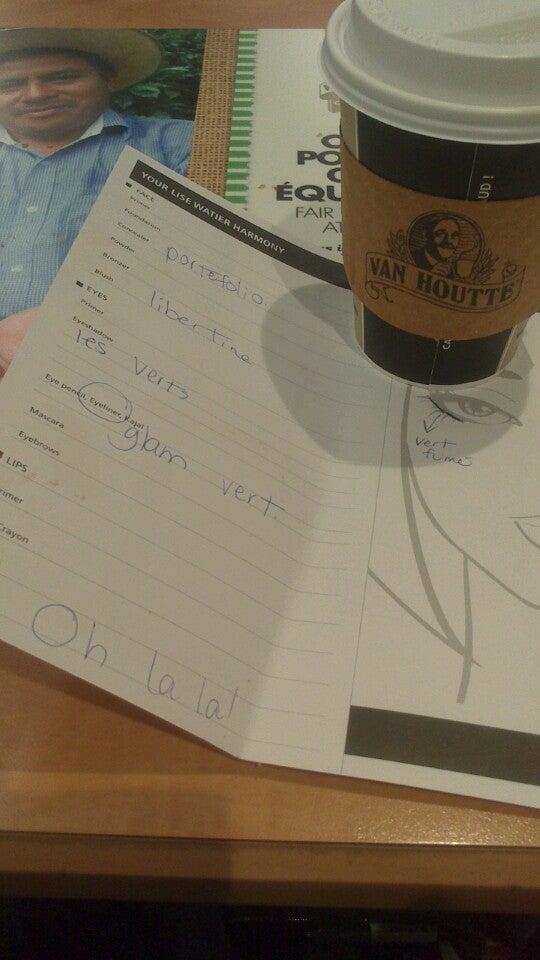 YOUR LISE WATIER HARMONY
FACE
Primer
Foundation
Concealer
Powder
portefolio
Bronzer
Blush
libertine
EYES
Primer
Eyeshadow
les verts
Eye pencil, Eyeliner, Kajal
glam vert
Mascara
Eyebrows
LIPS
Oh la la!
vert
fumé
VAN HOUTTE
FAIR